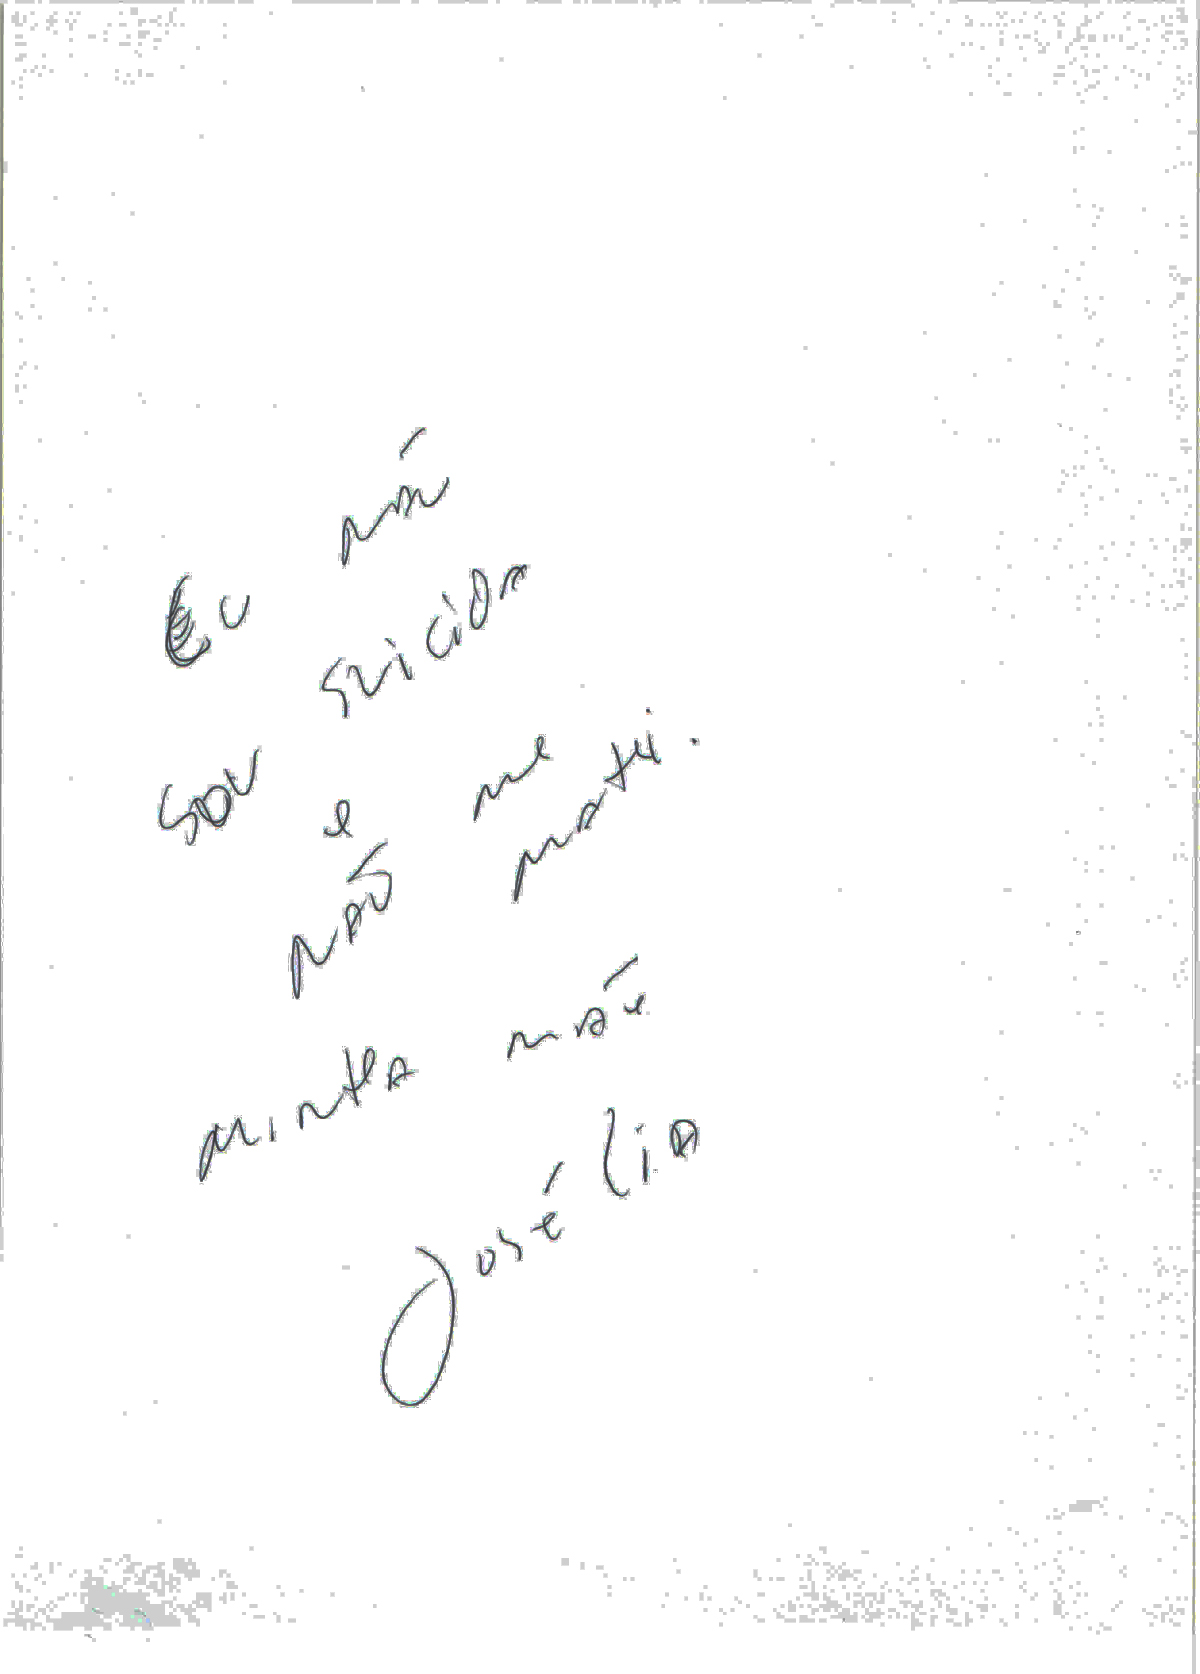 Eu não
sou suicida
e
não me matei.
minha mãe
José Lia